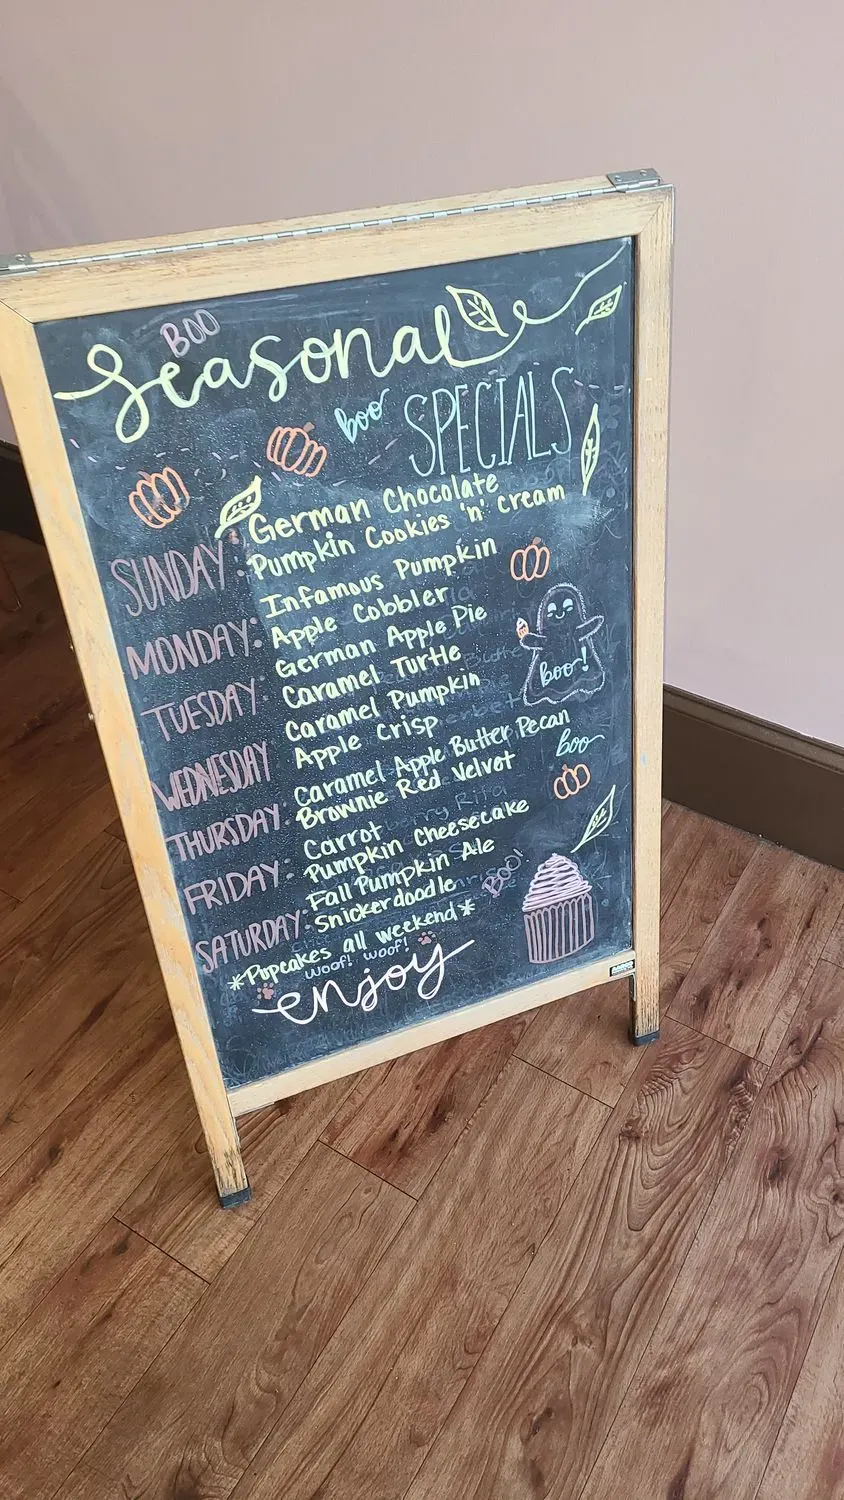 BOO
Seasonal
boo SPECIALS
German Chocolate
SUNDAY: Pumpkin Cookies 'n' cream
Infamous Pumpkin
MONDAY: Apple Cobbler
German Apple Pie
TUESDAY: Caramel Turtle
Caramel Pumpkin
WEDNESDAY: Apple Crisp
boo!
Caramel Apple Butter Pecan
THURSDAY: Brownie Red Velvet
boo
Carrot
FRIDAY: Pumpkin Cheesecake
Fall Pumpkin Ale
SATURDAY: Snickerdoodle
BOO!
*Pupcakes all weekend*
woof! woof!
enjoy